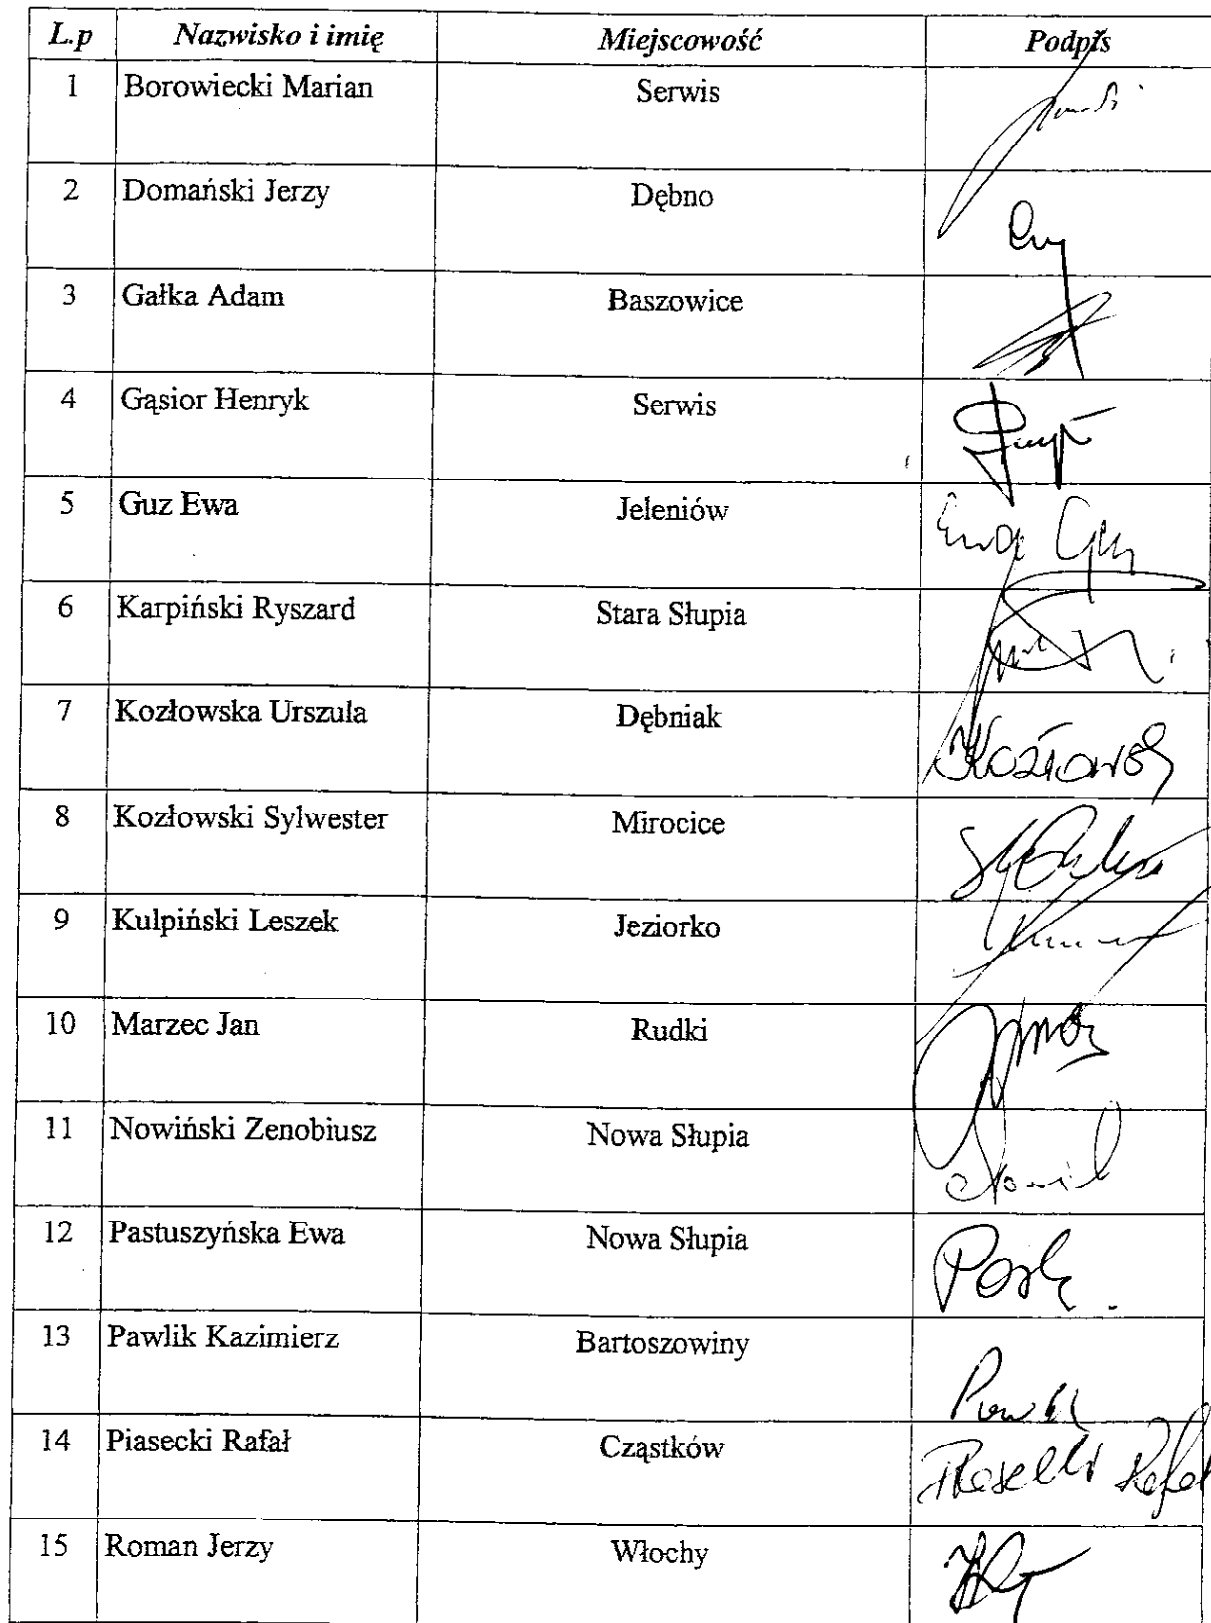 L.p Nazwisko i imię Miejscowość Podpis
1 Borowiecki Marian Serwis
2 Domański Jerzy Dębno
3 Gałka Adam Baszowice
4 Gąsior Henryk Serwis
5 Guz Ewa Jeleniów Ewa Guz
6 Karpiński Ryszard Stara Słupia
7 Kozłowska Urszula Dębniak
8 Kozłowski Sylwester Mirocice
9 Kulpiński Leszek Jeziorko
10 Marzec Jan Rudki
11 Nowiński Zenobiusz Nowa Słupia
12 Pastuszyńska Ewa Nowa Słupia
13 Pawlik Kazimierz Bartoszowiny
14 Piasecki Rafał Cząstków Piasecki Rafał
15 Roman Jerzy Włochy